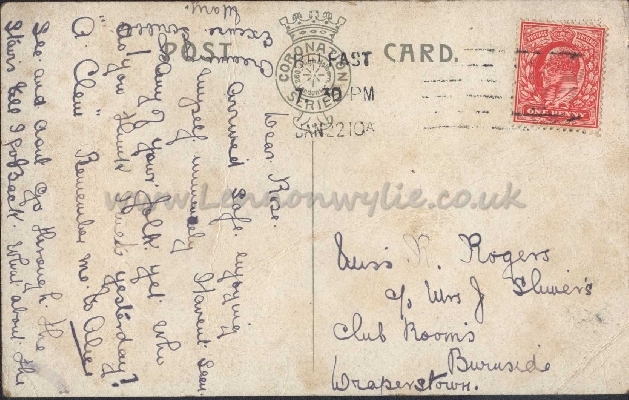 POST CARD.
CORONATION
SERIES
BELFAST
1 30 PM
JAN 22 10
ONE PENNY
Dear Rose.
Arrived safe enjoying
myself immensely Havent seen
any of your folk yet who
do you think I met yesterday?
A. Clem Remember me to Alice
See and dont go through the
Stairs till I go Back. What about the
Excuse
Miss R. Rogers
c/o Mrs J
Club Rooms
Burnside
Draperstown.
www.Lennonwylie.co.uk